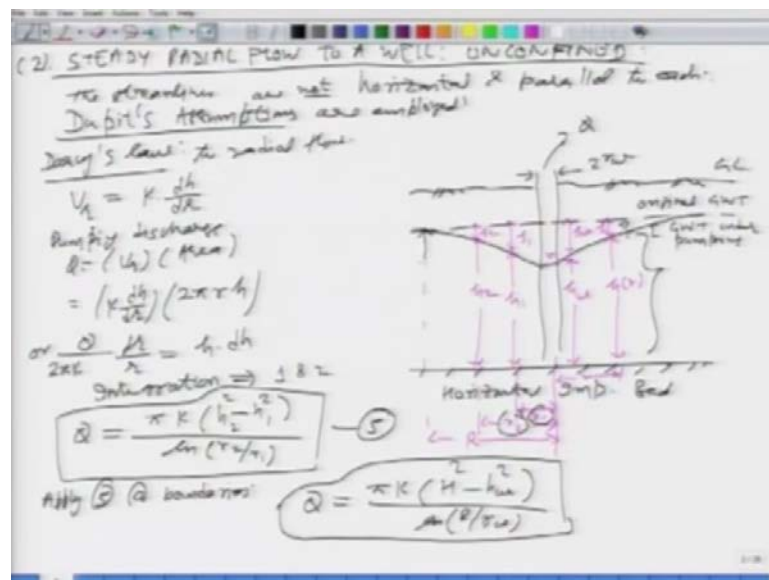 (2). STEADY RADIAL FLOW TO A WELL: UNCONFINED:
The streamlines are not horizontal & parallel to each.
Dupit's Assumptions are employed:
Darcy's law: to radial flow.
V_r = K dh/dr
Pumping discharge
Q = (V_r) (Area)
= (K dh/dr) (2πrh)
or Q/2πK dr/r = h·dh
Integration ⇒ 1 & 2
Q = πK(h₂² - h₁²) / ln(r₂/r₁) — (5)
Apply (5) @ boundaries:
Q = πK(H² - h_w²) / ln(R/r_w)
Q
2r_w
GL
original GWT
GWT under pumping
h₂
h₁
h_w
h(r)
Horizontal Imp. Bed
R